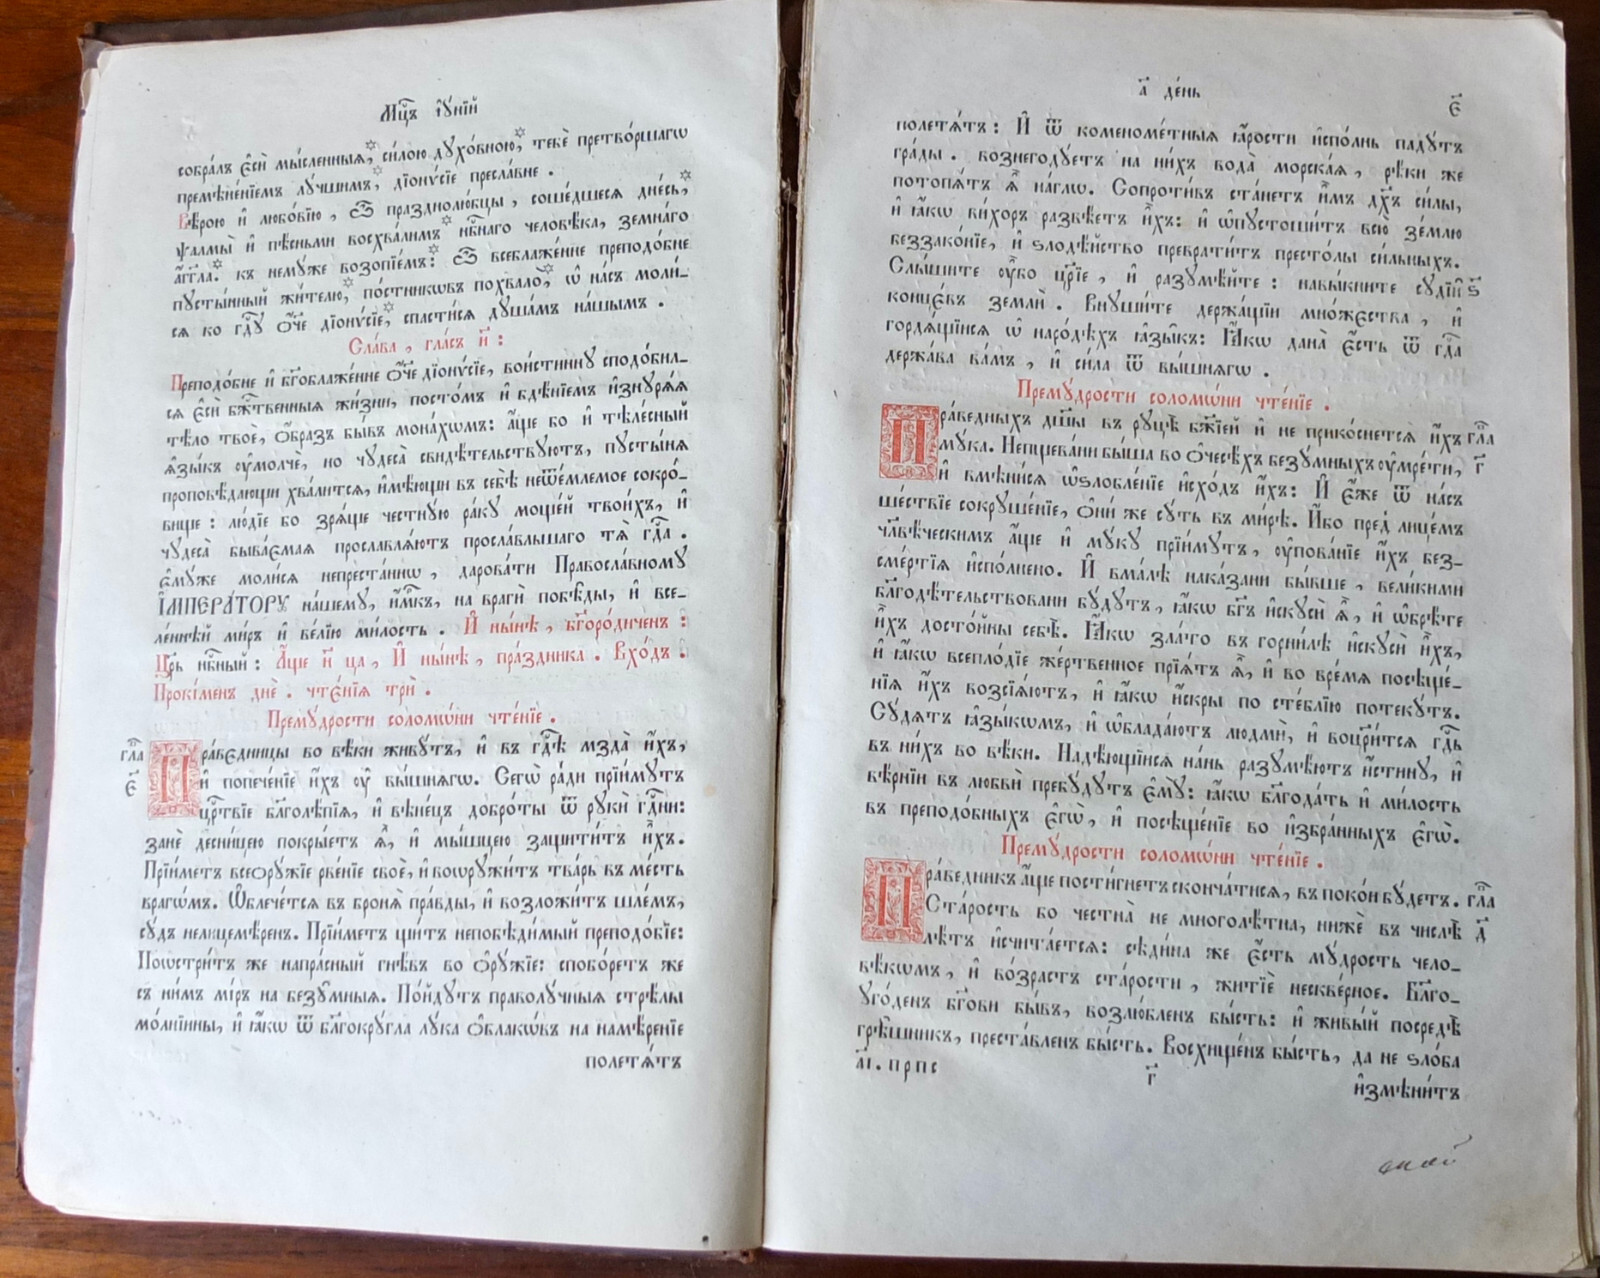 Мц҃ъ і҆ꙋ́нїй
собра́лъ є҆сѝ мы́сленныѧ,* си́лою дꙋхо́вною,* тебѐ претво́ршагѡ
премѣне́нїемъ лꙋ́чшимъ,* дїонѵ́сїе пресла́вне .
Вѣ́рою и҆ любо́вїю , ѽ празднолю́бцы , соше́дшесѧ дне́сь,*
ѱалмы̀ и҆ пѣ́сньми восхва́лимъ* нб҃наго человѣ́ка, земна́го
а҆́гг҃ла.* къ немꙋ́же возопїе́мъ:* ѽ всеблаже́нне преподо́бне
пꙋсты́нный жи́телю,* по́стникѡвъ похвало̀,* ѡ҆ на́съ моли́-
сѧ ко гдⷭ҇ꙋ ѻ҆́ч҃е дїонѵ́сїе,* спасти́сѧ дꙋша́мъ на́шымъ .
Сла́ва , гла́съ и҃ :
Преподо́бне и҆ бг҃облаже́нне ѻ҆́ч҃е дїонѵ́сїе, вои́стиннꙋ сподо́бил-
сѧ є҆сѝ бж҃твенныѧ жи́зни, посто́мъ и҆ бдѣ́нїемъ и҆знꙋрѧ́ѧ
тѣ́ло твоѐ, ѻ҆́бразъ бы́въ мона́хѡмъ: а҆́ще бо и҆ тѣле́сный
ѧ҆зы́къ ᲂу҆молчѐ, но чꙋдеса̀ свидѣ́тельствꙋютъ, пꙋсты́нѧ
проповѣ́дающи хва́литсѧ, и҆мѣ́ющи въ себѣ̀ неѿе́млемое сокро́-
вище : лю́дїе бо зрѧ́ще честнꙋ́ю ра́кꙋ моще́й твои́хъ, и҆
чꙋдеса̀ быва́ємаѧ прославлѧ́ютъ просла́вльшаго тѧ̀ гдⷭ҇а .
є҆мꙋ́же моли́сѧ непреста́ннѡ , дарова́ти Правосла́вномꙋ
І҆МПЕРА́ТОРꙊ на́шемꙋ, и҆́м҃къ, на врагѝ побѣ́ды, и҆ все-
ле́ннѣй ми́ръ и҆ ве́лїю ми́лость . И҆ ны́нѣ , бг҃оро́диченъ :
Цр҃ь нб҃ный : А҆́ще и҃ ца , И҆ ны́нѣ , пра́здника . Вхо́дъ .
Прокі́менъ днѐ . чтє́нїѧ трѝ .
Премꙋ́дрости соломѡ́ни чте́нїе .
гл҃а Пра́вєдницы во вѣ́ки живꙋ́тъ, и҆ въ гдⷭ҇ѣ мзда̀ и҆́хъ,
є҃ и҆ попече́нїе и҆́хъ ᲂу҆ вы́шнѧгѡ. Сегѡ̀ ра́ди прїи́мꙋтъ
црⷭ҇твїе благолѣ́пїѧ, и҆ вѣне́цъ добро́ты ѿ рꙋкѝ гдⷭ҇ни:
занѐ десни́цею покры́етъ ѧ҆̀, и҆ мы́шцею защити́тъ и҆́хъ.
Прїи́метъ всеѻрꙋ́жїе рве́нїе своѐ, и҆ воѡрꙋжи́тъ тва́рь въ ме́сть
врагѡ́мъ. Ѡ҆блече́тсѧ въ бронѧ̀ пра́вды, и҆ возложи́тъ шле́мъ,
сꙋ́дъ нелицемѣ́ренъ. Прїи́метъ щи́тъ непобѣди́мый преподо́бїе:
Поѡстри́тъ же напра́сный гнѣ́въ во ѻ҆рꙋ́жїе: спобо́ретъ же
съ ни́мъ мі́ръ на безꙋ́мныѧ. По́йдꙋтъ праволꙋ́чныѧ стрѣ́лы
мѡ́лнїины, и҆ ꙗ҆́кѡ ѿ благокрꙋ́гла лꙋ́ка ѻ҆́блакѡвъ на намѣ́ренїе
полетѧ́тъ
а҃ де́нь
є҃
полетѧ́тъ : И҆ ѿ каменоме́тныѧ ꙗ҆́рости и҆спо́лнь падꙋ́тъ
гра́ды . вознегодꙋ́етъ на ни́хъ вода̀ морска́ѧ , рѣ́ки же
потопѧ́тъ ѧ҆̀ на́глѡ. Сопроти́въ ста́нетъ и҆̀мъ дх҃ъ си́лы,
и҆ ꙗ҆́кѡ ви́хоръ развѣ́етъ и҆́хъ: и҆ ѡ҆пꙋстоши́тъ всю̀ зе́млю
беззако́нїе, и҆ ѕлодѣ́йство преврати́тъ престо́лы си́льныхъ.
Слы́шите ᲂу҆̀бо цр҃їе , и҆ разꙋмѣ́йте : навы́кните сꙋдїи̑ ѕ҃
конце́въ землѝ . Внꙋши́те держа́щїи мнѡ́жєства , и҆
гордѧ́щїисѧ ѡ҆ наро́дѣхъ ꙗ҆зы̑къ: Ꙗ҆́кѡ дана̀ є҆́сть ѿ гдⷭ҇а
держа́ва ва́мъ , и҆ си́ла ѿ вы́шнѧгѡ .
Премꙋ́дрости соломѡ́ни чте́нїе .
Пра́ведныхъ дш҃ы въ рꙋцѣ̀ бж҃їей и҆ не прико́снетсѧ и҆́хъ гл҃а
мꙋ́ка. Непщева́ни бы́ша во ѻ҆чесѣ́хъ безꙋ́мныхъ ᲂу҆мре́ти, г҃
и҆ вмѣни́сѧ ѡ҆ѕлобле́нїе и҆схо́дъ и҆́хъ: И҆ є҆́же ѿ на́съ
ше́ствїе сокрꙋше́нїе, ѻ҆ни́ же сꙋ́ть въ ми́рѣ. И҆́бо пред̾ лице́мъ
чл҃вѣ́ческимъ а҆́ще и҆ мꙋ́кꙋ прїи́мꙋтъ, ᲂу҆пова́нїе и҆́хъ без-
сме́ртїѧ и҆спо́лнено. И҆ вма́лѣ нака́зани бы́вше , вели́кими
благодѣ́тельствовани бꙋ́дꙋтъ, ꙗ҆́кѡ бг҃ъ и҆скꙋсѝ ѧ҆̀, и҆ ѡ҆брѣ́те
и҆́хъ досто́йны себѣ̀. Ꙗ҆́кѡ зла́то въ горни́лѣ и҆скꙋсѝ и҆́хъ,
и҆ ꙗ҆́кѡ всепло́дїе же́ртвенное прїѧ́тъ ѧ҆̀, и҆ во вре́мѧ посѣще́-
нїѧ и҆́хъ возсїѧ́ютъ, и҆ ꙗ҆́кѡ и҆́скры по сте́блїю потекꙋ́тъ.
Сꙋ́дѧтъ ꙗ҆зы́кѡмъ, и҆ ѡ҆блада́ютъ людмѝ, и҆ воцр҃и́тсѧ гдⷭ҇ь
въ ни́хъ во вѣ́ки. Надѣ́ющїисѧ на́нь разꙋмѣ́ютъ и҆́стинꙋ, и҆
вѣ́рнїи въ любвѝ пребꙋ́дꙋтъ є҆мꙋ̀: ꙗ҆́кѡ благода́ть и҆ ми́лость
въ преподо́бныхъ є҆гѡ̀, и҆ посѣще́нїе во и҆збра́нныхъ є҆гѡ̀.
Премꙋ́дрости соломѡ́ни чте́нїе .
Пра́ведникъ а҆́ще пости́гнетъ сконча́тисѧ, въ поко́и бꙋ́детъ. гл҃а
Ста́рость бо честна̀ не многолѣ́тна, нижѐ въ числѣ̀ д҃
лѣ́тъ и҆счита́етсѧ: сѣди́на же є҆́сть мꙋ́дрость чело-
вѣ́кѡмъ, и҆ во́зрастъ ста́рости , житїѐ нескве́рное. Бл҃го-
ꙋго́денъ бг҃ови бы́въ, возлю́бленъ бы́сть: и҆ живы́й посредѣ̀
грѣ́шникъ, преста́вленъ бы́сть. Восхище́нъ бы́сть, да не ѕло́ба
а҃і. п р п с г҃ и҆змѣни́тъ